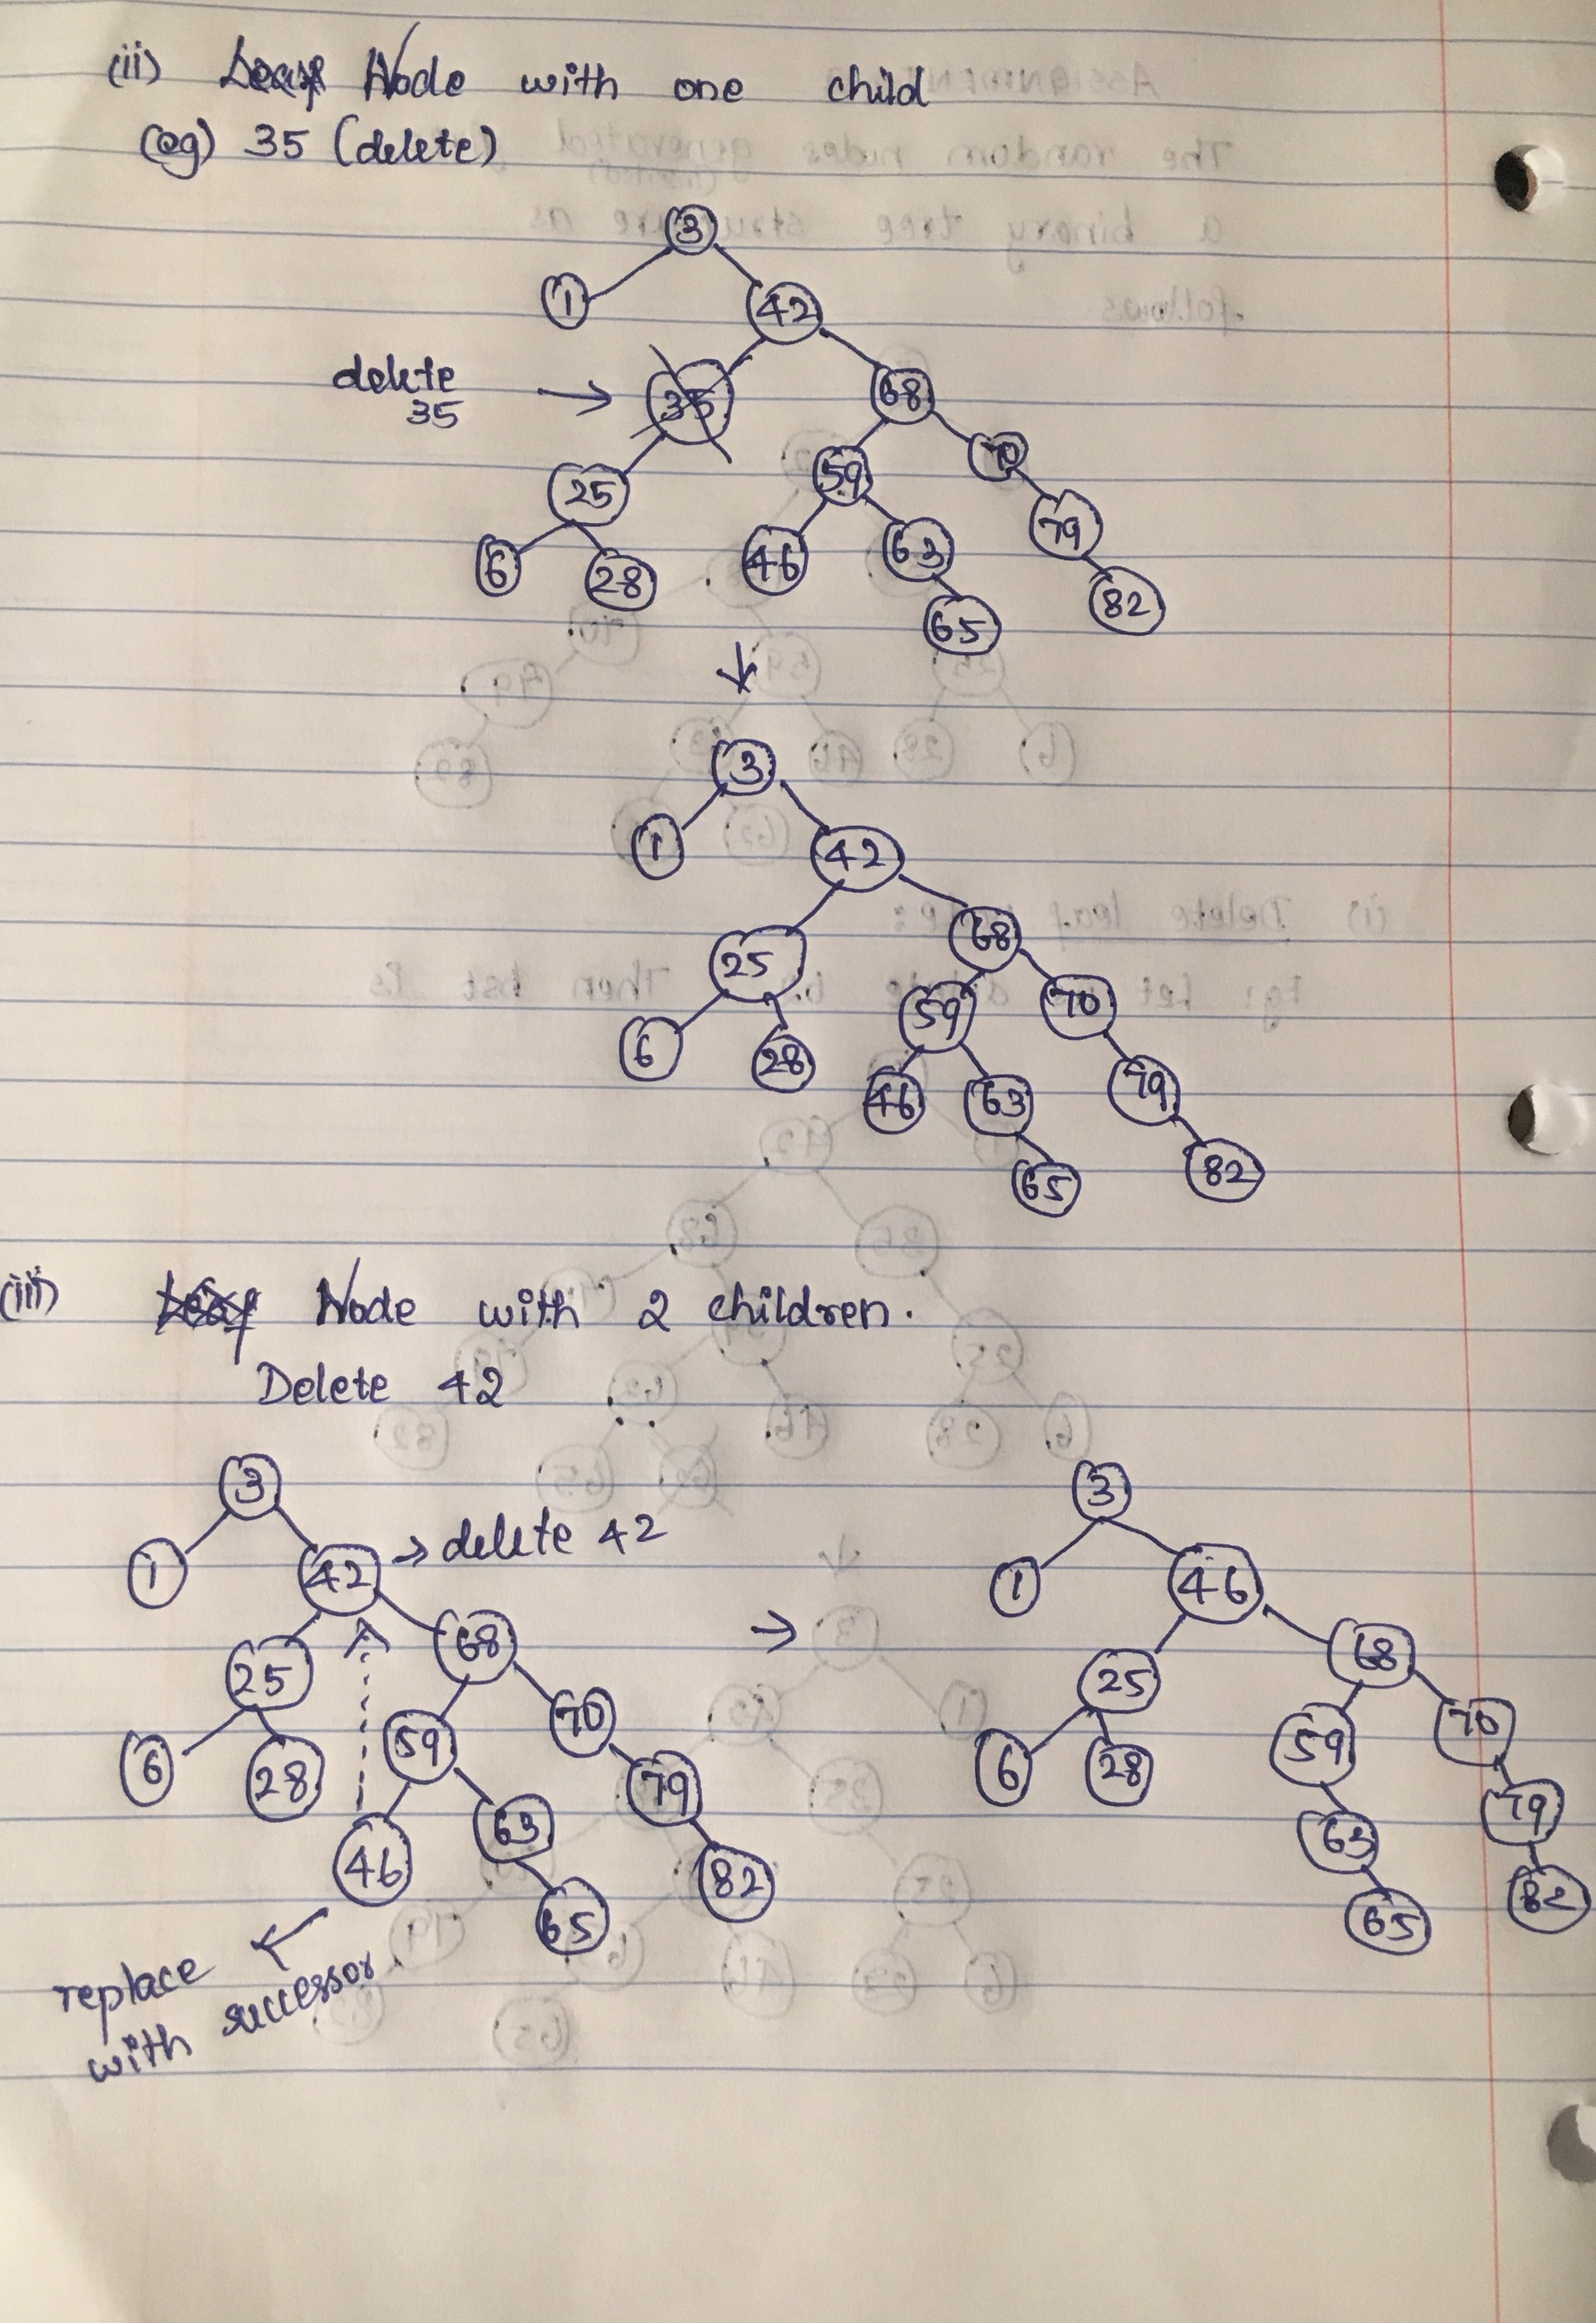 (ii) Leaf Node with one child
(eg) 35 (delete)
3
1
42
delete
35
35
68
25
59
70
6
28
46
63
79
65
82
3
1
42
25
68
6
28
59
70
46
63
79
65
82
(iii) Leaf Node with 2 children.
Delete 42
3
1
42 → delete 42
25
68
6
28
59
70
46
63
79
65
82
replace
with successor
→
3
1
46
25
68
6
28
59
70
63
79
65
82